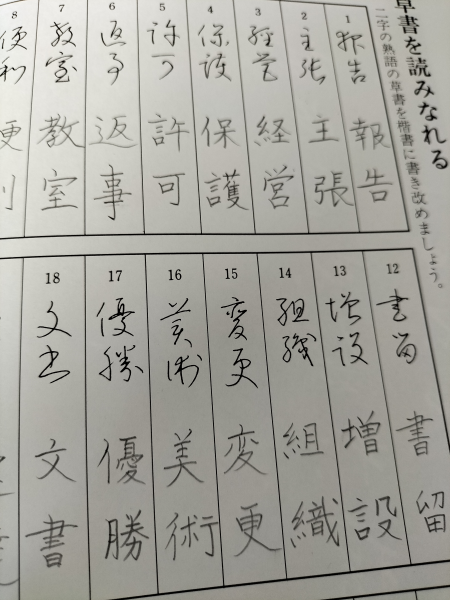 草書を読みなれる
二字の熟語の草書を楷書に書き改めましょう。
1
報告
報告
2
主張
主張
3
経営
経営
4
保護
保護
5
許可
許可
6
返事
返事
7
教室
教室
8
便利
便利
12
書留
書留
13
増設
増設
14
組織
組織
15
変更
変更
16
美術
美術
17
優勝
優勝
18
文書
文書